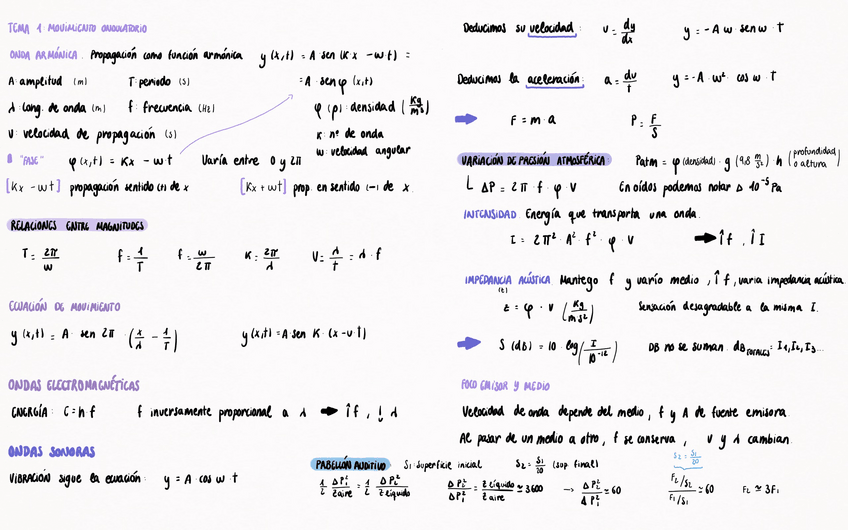 TEMA 1: MOVIMIENTO ONDULATORIO
ONDA ARMÓNICA. Propagación como función armónica y(x,t) = A sen (K·x - w·t) =
= A · sen φ (x,t)
A: amplitud (m) T: periodo (s)
λ: long. de onda (m) f: frecuencia (Hz)
φ (ρ): densidad (Kg/m³)
V: velocidad de propagación (s)
K: nº de onda
w: velocidad angular
"FASE" φ(x,t) = Kx - w·t Varía entre 0 y 2π
[Kx - wt] propagación sentido (+) de x [Kx + wt] prop. en sentido (-) de x.
RELACIONES ENTRE MAGNITUDES
T = 2π/w f = 1/T f = w/2π K = 2π/λ V = λ/t = λ · f
ECUACIÓN DE MOVIMIENTO
y(x,t) = A · sen 2π · (x/λ - t/T) y(x,t) = A sen K · (x - v·t)
ONDAS ELECTROMAGNÉTICAS
ENERGÍA: C = h·f f inversamente proporcional a λ → ↑f , ↓λ
ONDAS SONORAS
VIBRACIÓN sigue la ecuación: y = A · cos w · t
Deducimos su velocidad: v = dy/dx y = -A w · sen w · t
Deducimos la aceleración: a = dv/t y = -A · w² · cos w · t
→ F = m · a P = F/S
VARIACIÓN DE PRESIÓN ATMOSFÉRICA Patm = φ (densidad) · g (9,8 m/s²) · h (profundidad o altura)
ΔP = 2π · f · φ · V En oídos podemos notar Δ 10⁻⁵ Pa
INTENSIDAD. Energía que transporta una onda.
I = 2π² · A² · f² · φ · V → ↑f , ↑I
IMPEDANCIA ACÚSTICA. Mantengo f y varío medio, ↑f, varia impedancia acústica.
(z)
z = φ · v (Kg/ms²) Sensación desagradable a la misma I.
→ S (dB) = 10 · log (I/10⁻¹²) DB no se suman. dB TOTALES = I₁, I₂, I₃...
FOCO EMISOR Y MEDIO
Velocidad de onda depende del medio, f y A de fuente emisora.
Al pasar de un medio a otro, f se conserva, v y λ cambian.
PABELLÓN AUDITIVO S₁: superficie inicial S₂ = S₁/20 (sup. final)
S₂ = S₁/20
1/2 ΔP₁²/z aire = 1/2 ΔP₂²/z líquido ΔP₂²/ΔP₁² = z líquido/z aire ≃ 3600 → ΔP₂/ΔP₁ ≃ 60 F₂/S₂ / F₁/S₁ ≃ 60 F₂ ≃ 3F₁